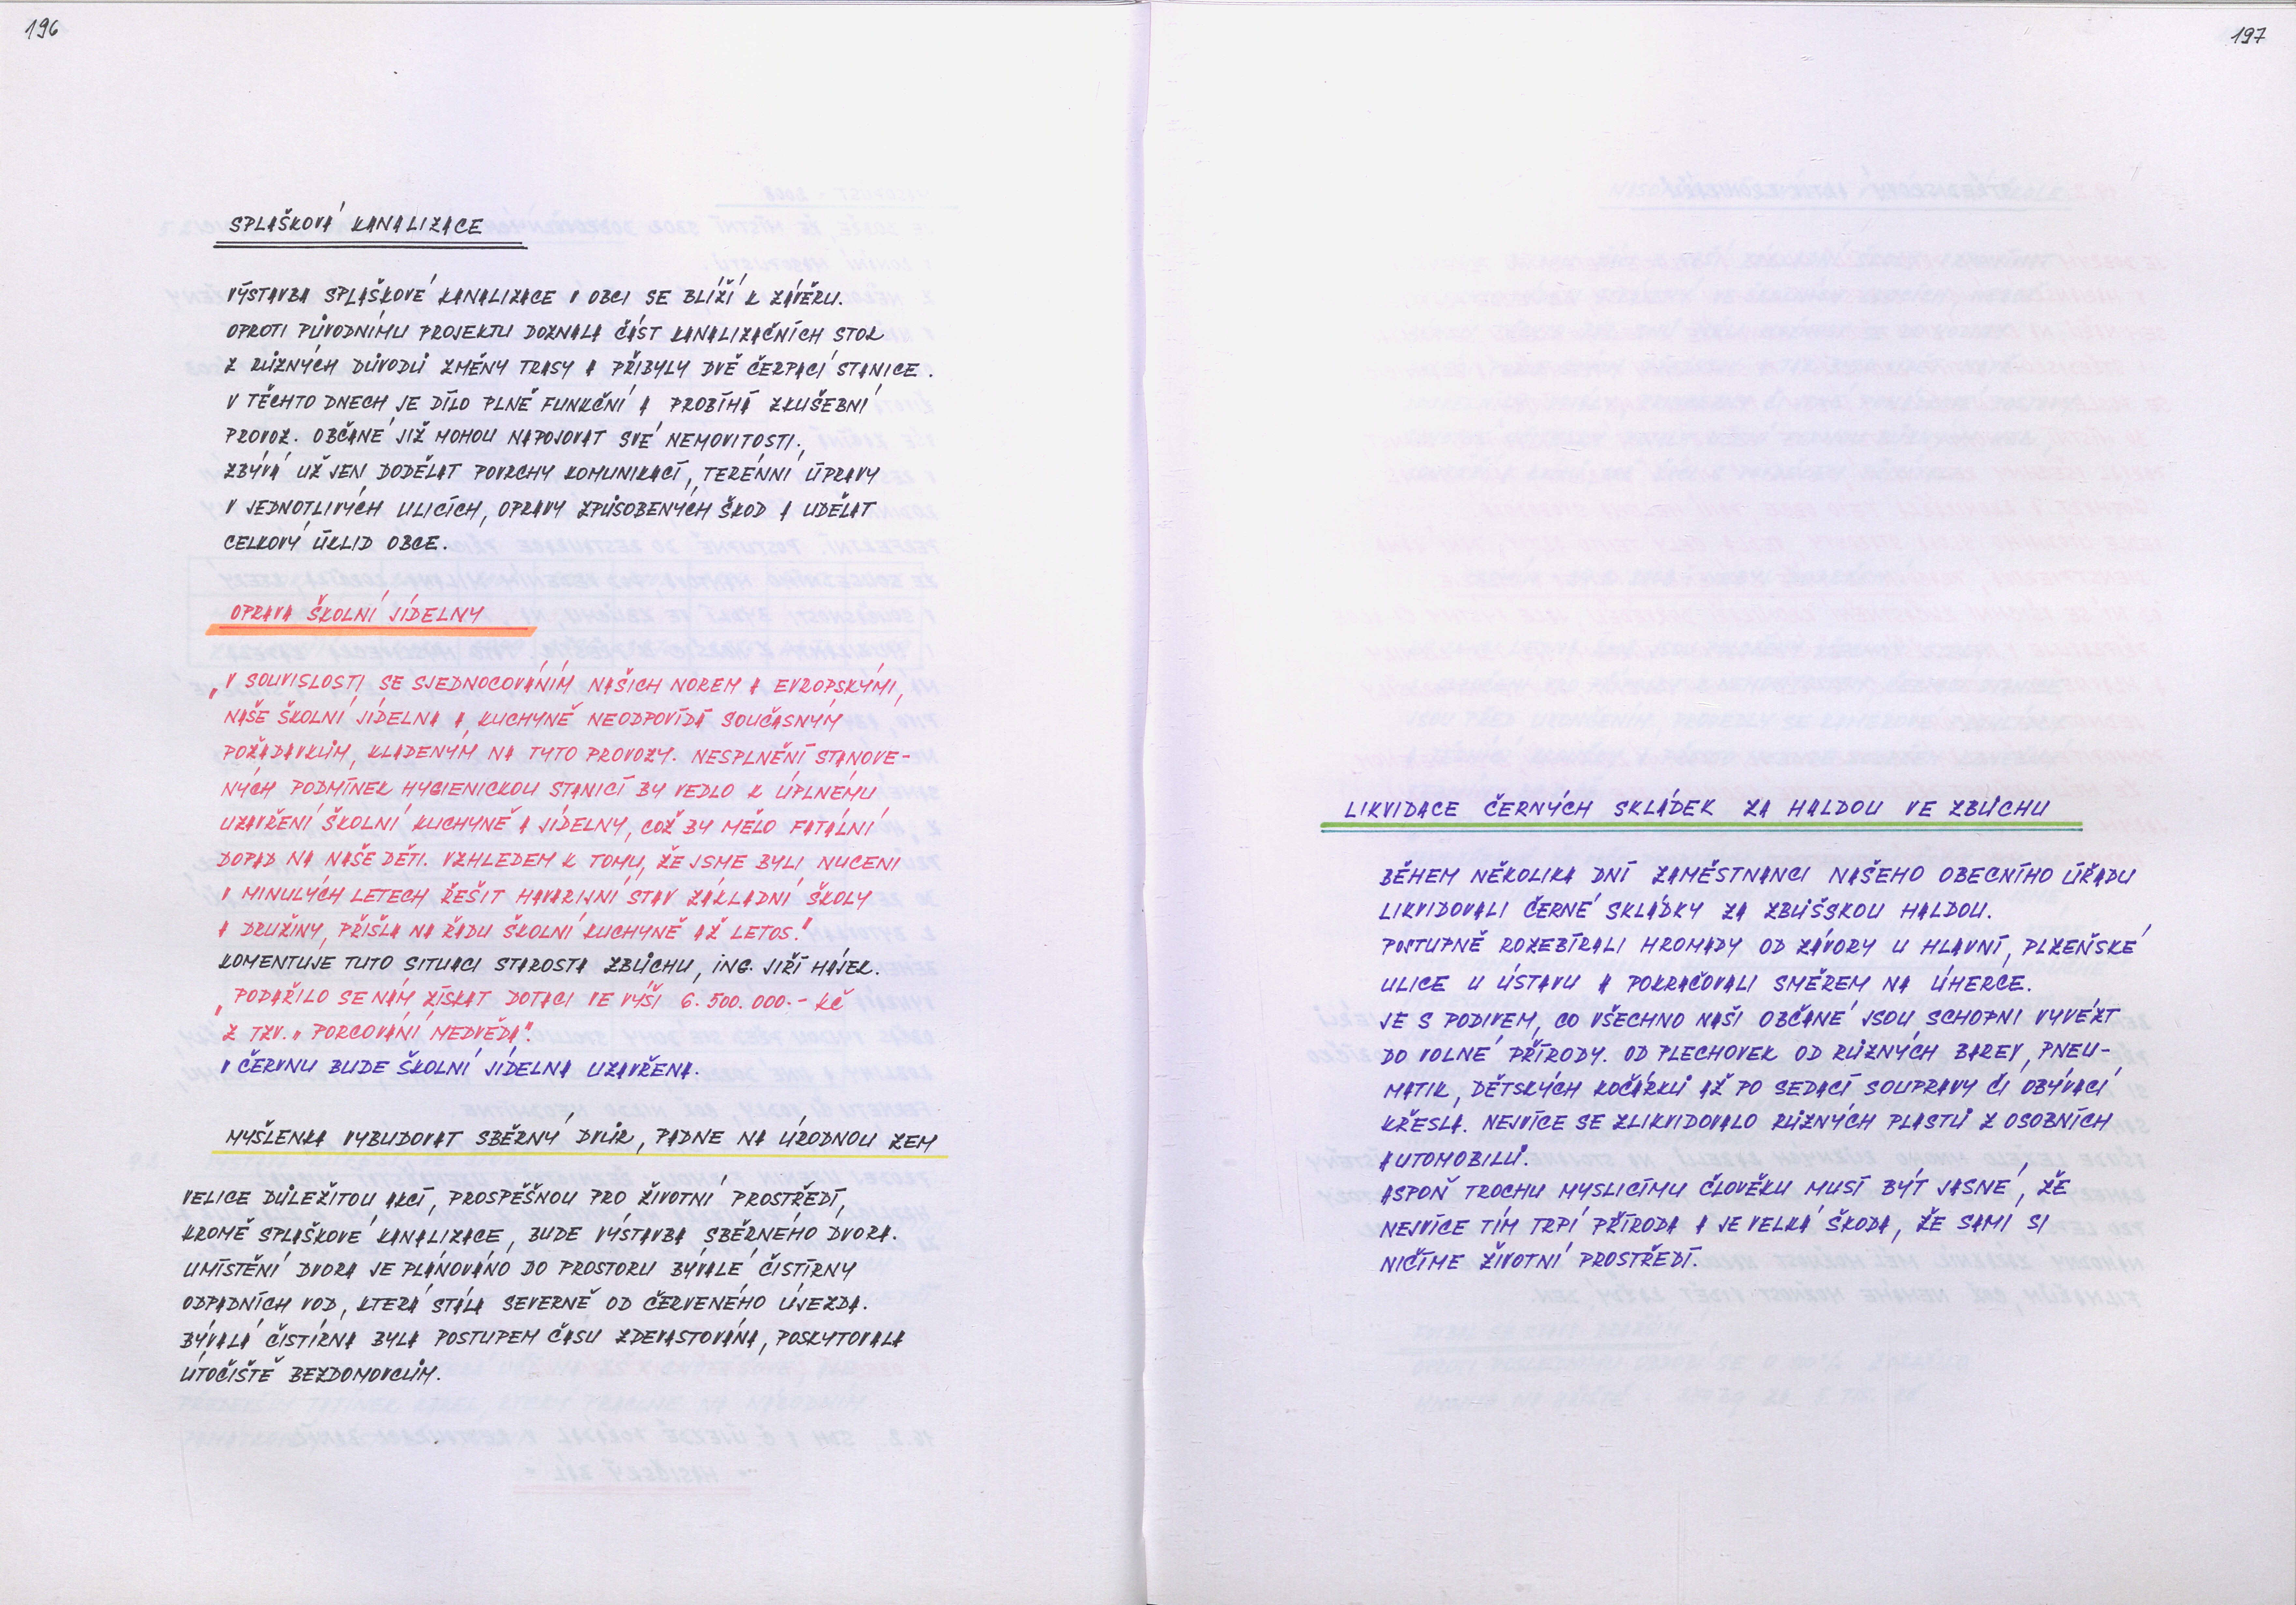 196
SPLAŠKOVÁ KANALIZACE
VÝSTAVBA SPLAŠKOVÉ KANALIZACE V OBCI SE BLÍŽÍ K ZÁVĚRU.
OPROTI PŮVODNÍMU PROJEKTU DOZNALA ČÁST KANALIZAČNÍCH STOK
Z RŮZNÝCH DŮVODŮ ZMĚNY TRASY A PŘIBYLY DVĚ ČERPACÍ STANICE.
V TĚCHTO DNECH JE DÍLO PLNĚ FUNKČNÍ A PROBÍHÁ ZKUŠEBNÍ
PROVOZ. OBČANÉ JIŽ MOHOU NAPOJOVAT SVÉ NEMOVITOSTI.
ZBÝVÁ UŽ JEN DODĚLAT POVRCHY KOMUNIKACÍ, TERÉNNÍ ÚPRAVY
V JEDNOTLIVÝCH ULICÍCH, OPRAVY ZPŮSOBENÝCH ŠKOD A UDĚLAT
CELKOVÝ ÚKLID OBCE.
OPRAVA ŠKOLNÍ JÍDELNY
„V SOUVISLOSTI SE SJEDNOCOVÁNÍM NAŠICH NOREM A EVROPSKÝMI,
NAŠE ŠKOLNÍ JÍDELNA A KUCHYNĚ NEODPOVÍDÁ SOUČASNÝM
POŽADAVKŮM, KLADENÝM NA TYTO PROVOZY. NESPLNĚNÍ STANOVE-
NÝCH PODMÍNEK HYGIENICKOU STANICÍ BY VEDLO K ÚPLNÉMU
UZAVŘENÍ ŠKOLNÍ KUCHYNĚ A JÍDELNY, COŽ BY MĚLO FATÁLNÍ
DOPAD NA NAŠE DĚTI. VZHLEDEM K TOMU, ŽE JSME BYLI NUCENI
V MINULÝCH LETECH ŘEŠIT HAVARIJNÍ STAV ZÁKLADNÍ ŠKOLY
A DRUŽINY, PŘIŠLA NA ŘADU ŠKOLNÍ KUCHYNĚ AŽ LETOS."
KOMENTUJE TUTO SITUACI STAROSTA ZBŮCHU, ING. JIŘÍ HÁJEK.
„PODAŘILO SE NÁM ZÍSKAT DOTACI VE VÝŠI 6.500.000.- KČ
Z TZV. „PORCOVÁNÍ MEDVĚDA".
V ČERVNU BUDE ŠKOLNÍ JÍDELNA UZAVŘENA.
MYŠLENKA VYBUDOVAT SBĚRNÝ DVŮR, PADNE NA ÚRODNOU ZEM
VELICE DŮLEŽITOU AKCÍ, PROSPĚŠNOU PRO ŽIVOTNÍ PROSTŘEDÍ,
KROMĚ SPLAŠKOVÉ KANALIZACE, BUDE VÝSTAVBA SBĚRNÉHO DVORA.
UMÍSTĚNÍ DVORA JE PLÁNOVÁNO DO PROSTORU BÝVALÉ ČISTÍRNY
ODPADNÍCH VOD, KTERÁ STÁLA SEVERNĚ OD ČERVENÉHO ÚJEZDA.
BÝVALÁ ČISTÍRNA BYLA POSTUPEM ČASU ZDEVASTOVÁNA, POSKYTOVALA
ÚTOČIŠTĚ BEZDOMOVCŮM.
197
LIKVIDACE ČERNÝCH SKLÁDEK ZA HALDOU VE ZBŮCHU
BĚHEM NĚKOLIKA DNÍ ZAMĚSTNANCI NAŠEHO OBECNÍHO ÚŘADU
LIKVIDOVALI ČERNÉ SKLÁDKY ZA ZBŮŠSKOU HALDOU.
POSTUPNĚ ROZEBÍRALI HROMADY OD ZÁVORY U HLAVNÍ, PLZEŇSKÉ
ULICE U ÚSTAVU A POKRAČOVALI SMĚREM NA ÚHERCE.
JE S PODIVEM, CO VŠECHNO NAŠI OBČANÉ JSOU SCHOPNI VYVÉZT
DO VOLNÉ PŘÍRODY. OD PLECHOVEK OD RŮZNÝCH BAREV, PNEU-
MATIK, DĚTSKÝCH KOČÁRKŮ AŽ PO SEDACÍ SOUPRAVY ČI OBÝVACÍ
KŘESLA. NEJVÍCE SE ZLIKVIDOVALO RŮZNÝCH PLASTŮ Z OSOBNÍCH
AUTOMOBILŮ.
ASPOŇ TROCHU MYSLICÍMU ČLOVĚKU MUSÍ BÝT JASNÉ, ŽE
NEJVÍCE TÍM TRPÍ PŘÍRODA A JE VELKÁ ŠKODA, ŽE SAMI SI
NIČÍME ŽIVOTNÍ PROSTŘEDÍ.